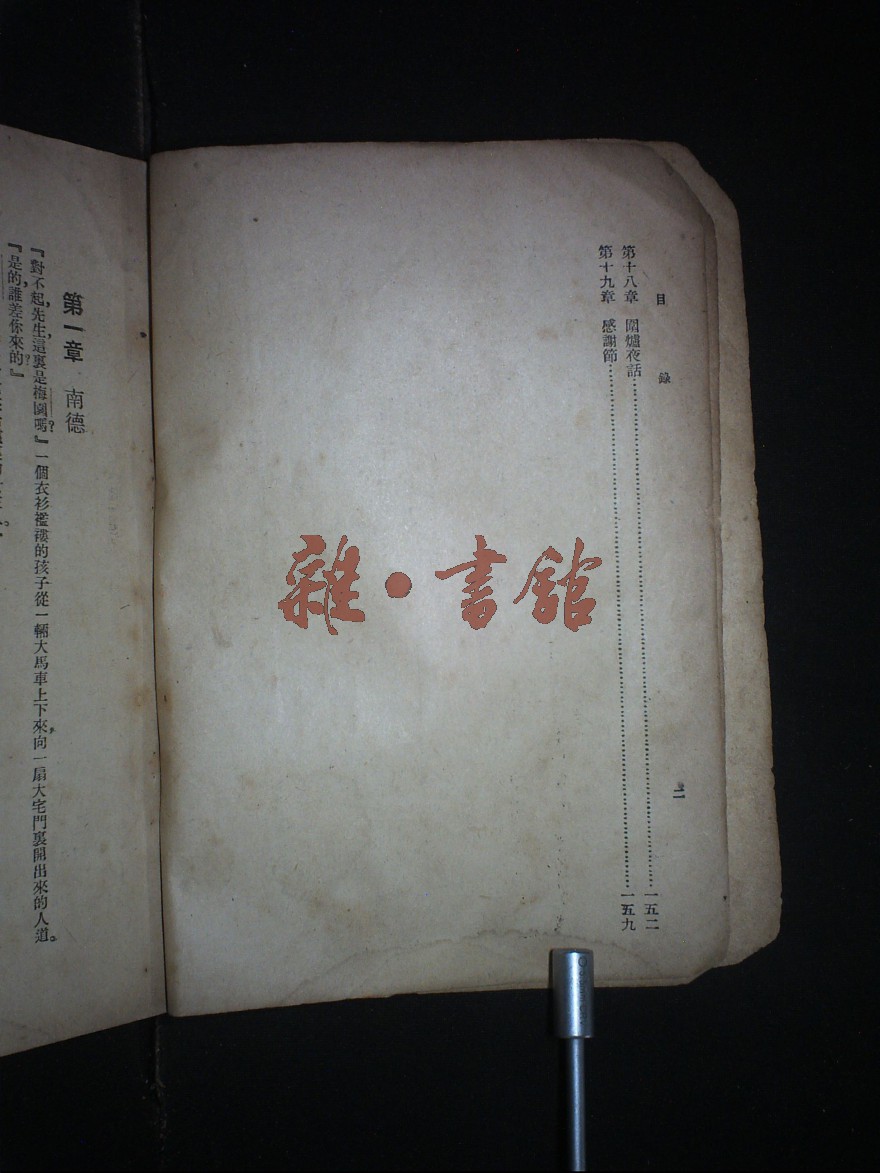 目 錄
第十八章 圍爐夜話……一五二
第十九章 感謝節……一五九
二
雜·書館
第一章 南德
『對不起,先生,這裏是梅園嗎?』一個衣衫襤褸的孩子從一輛大馬車上下來,向一扇大宅門裏開出來的人道。
『是的,誰差你來的?』